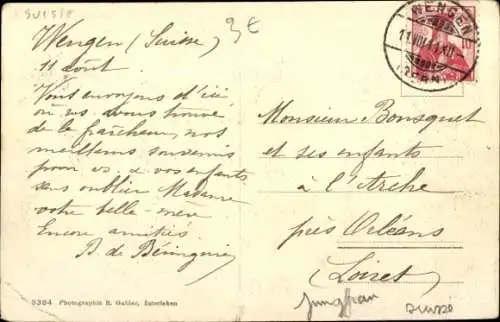 SUISSE
3€
Wengen (Suisse)
11 août.
Vous envoyons d'ici
où l'on trouve
de la fraîcheur, nos
meilleurs souvenirs
pour vs & vos enfants
sans oublier Madame
votre belle-mère
Encore amitiés
B. de
5384 Photographie R. Gabler, Interlaken
WENGEN
11.VIII.11.XII-
(BERN)
Monsieur Bousquet
et ses enfants
à l'Arche
près Orléans
(Loiret)
Jungfrau
Suisse